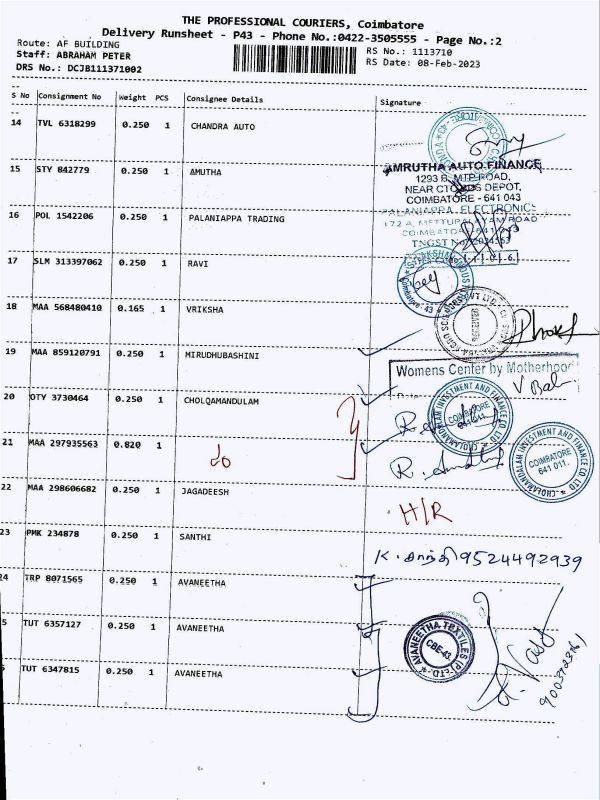 THE PROFESSIONAL COURIERS, Coimbatore
Delivery Runsheet - P43 - Phone No.:0422-3505555 - Page No.:2
Route: AF BUILDING
Staff: ABRAHAM PETER
DRS No.: DCJB111371002
RS No.: 1113710
RS Date: 08-Feb-2023
S No Consignment No Weight PCS Consignee Details Signature
14 TVL 6318299 0.250 1 CHANDRA AUTO
15 STY 842779 0.250 1 AMUTHA
AMRUTHA AUTO FINANCE
1293 B, MTP ROAD,
NEAR CTC BUS DEPOT,
COIMBATORE - 641 043
16 POL 1542206 0.250 1 PALANIAPPA TRADING
PALANIAPPA ELECTRONICS
172 A, METTUPALAYAM ROAD
COIMBATORE 641 043
TNGST No
17 SLM 313397062 0.250 1 RAVI
18 MAA 568480410 0.165 1 VRIKSHA
19 MAA 859120791 0.250 1 MIRUDHUBASHINI
Womens Center by Motherhood
20 OTY 3730464 0.250 1 CHOLQAMANDULAM
CHOLAMANDALAM INVESTMENT AND FINANCE CO LTD
COIMBATORE
21 MAA 297935563 0.820 1 do
CHOLAMANDALAM INVESTMENT AND FINANCE CO LTD
COIMBATORE
641 011.
22 MAA 298606682 0.250 1 JAGADEESH
H/R
23 PMK 234878 0.250 1 SANTHI
K. சாந்தி 9524492939
24 TRP 8071565 0.250 1 AVANEETHA
5 TUT 6357127 0.250 1 AVANEETHA
AVANEETHA TEXTILES (P) LTD.
CBE-43
5 TUT 6347815 0.250 1 AVANEETHA